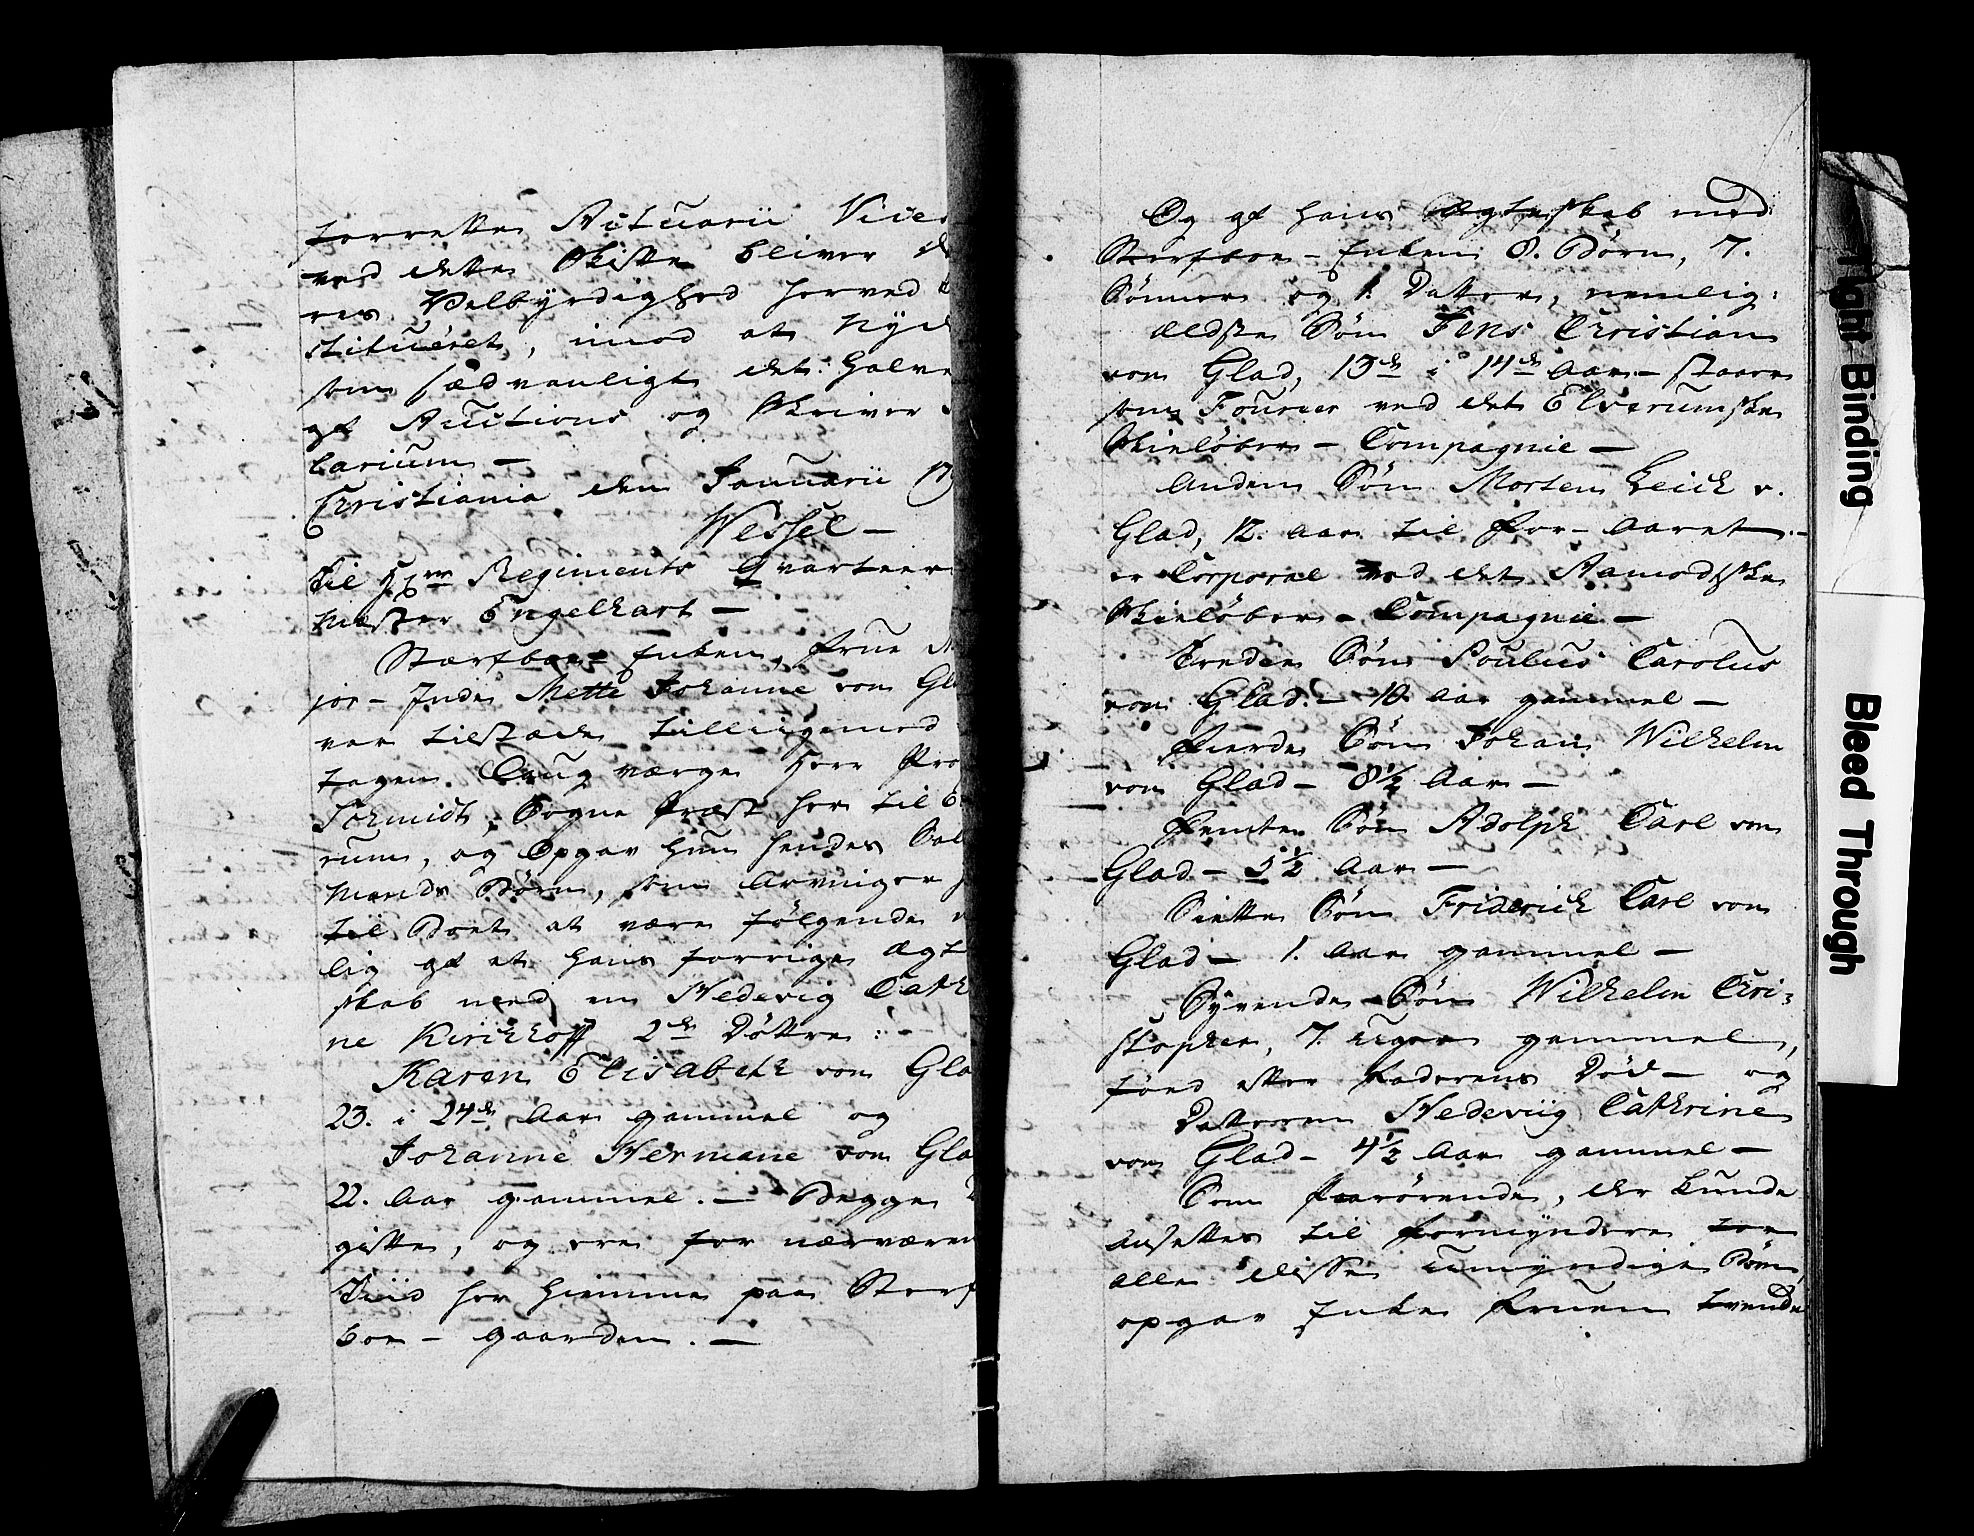 forrette Actuarii
ved dette Skifte bliver
res Velbyrdighed herved
stitueret, imod at nyde
som sædvanligt det halve
af Auctions og Skriver
larium –
Christiania den Januarii 17
Wessel –
Til Hrr Regiments Qvarteer
mester Engelhart –
Stærfboe Enken, Frue Ma
jor-Inde Mette Johanne von Gla
var tilstæde tilligemed
tagen Laugværge Herr Pro
Schmidt, Sogne Præst her til E
rum, og opgav hun hendes Sal
Mands Børn, som Arvinger
til Boet at være følgende
lig af et hans forrige Ægt
skab med en Hedevig Cath
ne Kirchhoff 2de Døttre :-
Karen Elisabeth von Gla
23. i 24de Aar gammel og
Johanne Hermane von Gla
22. Aar gammel. – Begge
gifte, og ere for nærværen
Tiid her hiemme paa Sterf
boe – gaarden. –
Og af hans Ægteskab med
Sterfboe – Enken 8. Børn, 7.
Sønner og 1. Datter, nemlig:
Ældste Søn Jens Christian
von Glad, 13de i 14de Aar – staar
som Fourer ved det Elverumske
Skieløber – Compagnie –
Anden Søn Morten Leich v.
Glad, 12. Aar til For-Aaret –
er Corporal ved det Aamodske
Skieløber – Compagnie –
Tredie Søn Poulus Carolus
von Glad. – 10. Aar gammel –
Fierde Søn Johan Wilhelm
von Glad – 8½ Aar –
Femte Søn Adolph Carl von
Glad – 5½ Aar –
Siette Søn Friderich Carl von
Glad – 1. Aar gammel –
Syvende Søn Wilhelm Chri-
stopher, 7. uger gammel,
fød efter Faderens Død – og
Datteren Hedeviig Cathrine
von Glad – 4½ Aar gammel –
Som Paarørende, der kunde
ansettes til Formyndere for
alle disse umyndige Børn,
opgav Enke Fruen tvende
Tight Binding
Bleed Through